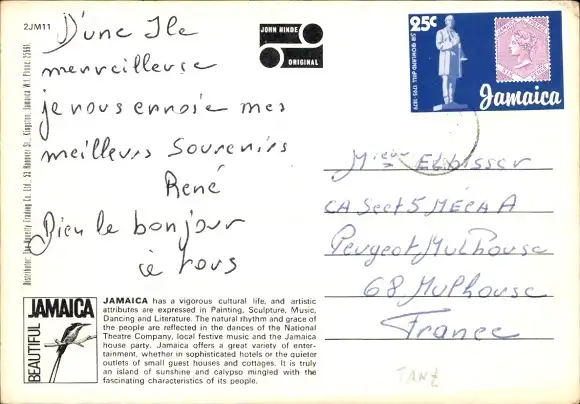 2JM11
D'une Ile
merveilleuse
je vous envoie mes
meilleurs Souvenirs
René
Bien le bonjour
à tous
JOHN HINDE
ORIGINAL
25c
SIR ROWLAND HILL 1795-1879
Jamaica
Mieur
CA Sect 5 MÉCA A
Peugeot Mulhouse
68 Mulhouse
France
TANZ
Distributor: The Novelty Trading Co. Ltd., 53 Hanover St., Kingston, Jamaica W.I. Phone 25661
BEAUTIFUL JAMAICA
JAMAICA has a vigorous cultural life, and artistic
attributes are expressed in Painting, Sculpture, Music,
Dancing and Literature. The natural rhythm and grace of
the people are reflected in the dances of the National
Theatre Company, local festive music and the Jamaica
house party. Jamaica offers a great variety of enter-
tainment, whether in sophisticated hotels or the quieter
outlets of small guest houses and cottages. It is truly
an island of sunshine and calypso mingled with the
fascinating characteristics of its people.